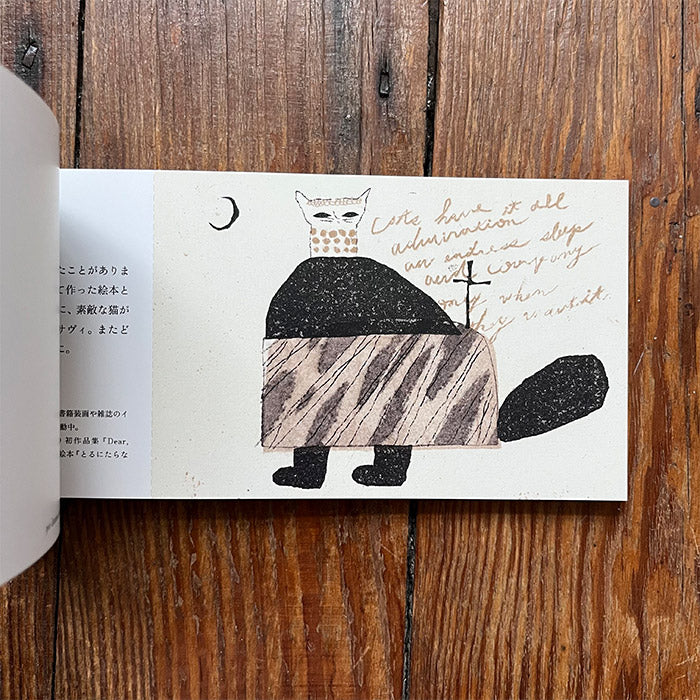 たことがありま
て作った絵本と
に、素敵な猫が
サヴィ。またど
に。
書籍装画や雑誌のイ
動中。
初作品集『Dear,
絵本『とるにたらな
Cats have it all
admiration
an endless sleep
and company
only when
they want it.